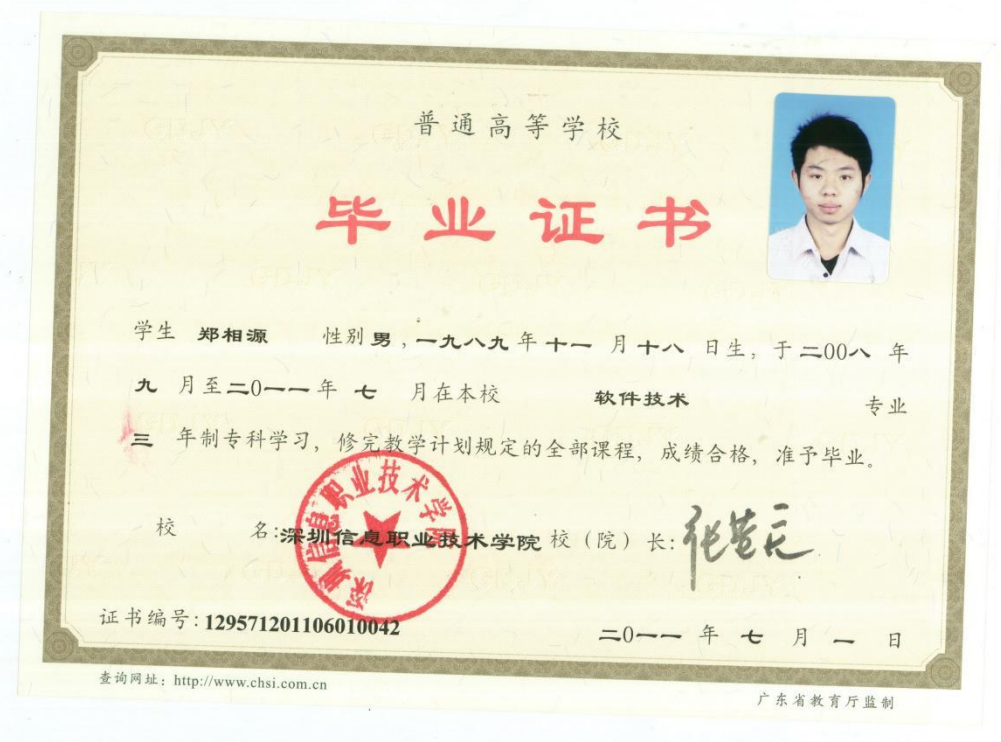 普通高等学校
毕业证书
学生 郑相源 性别 男，一九八九年十一月十八日生，于二00八年
九月至二0一一年七月在本校 软件技术 专业
三年制专科学习，修完教学计划规定的全部课程，成绩合格，准予毕业。
深圳信息职业技术学院
校 名:深圳信息职业技术学院 校（院）长:
证书编号:129571201106010042
二0一一年七月一日
查询网址：http://www.chsi.com.cn
广东省教育厅监制